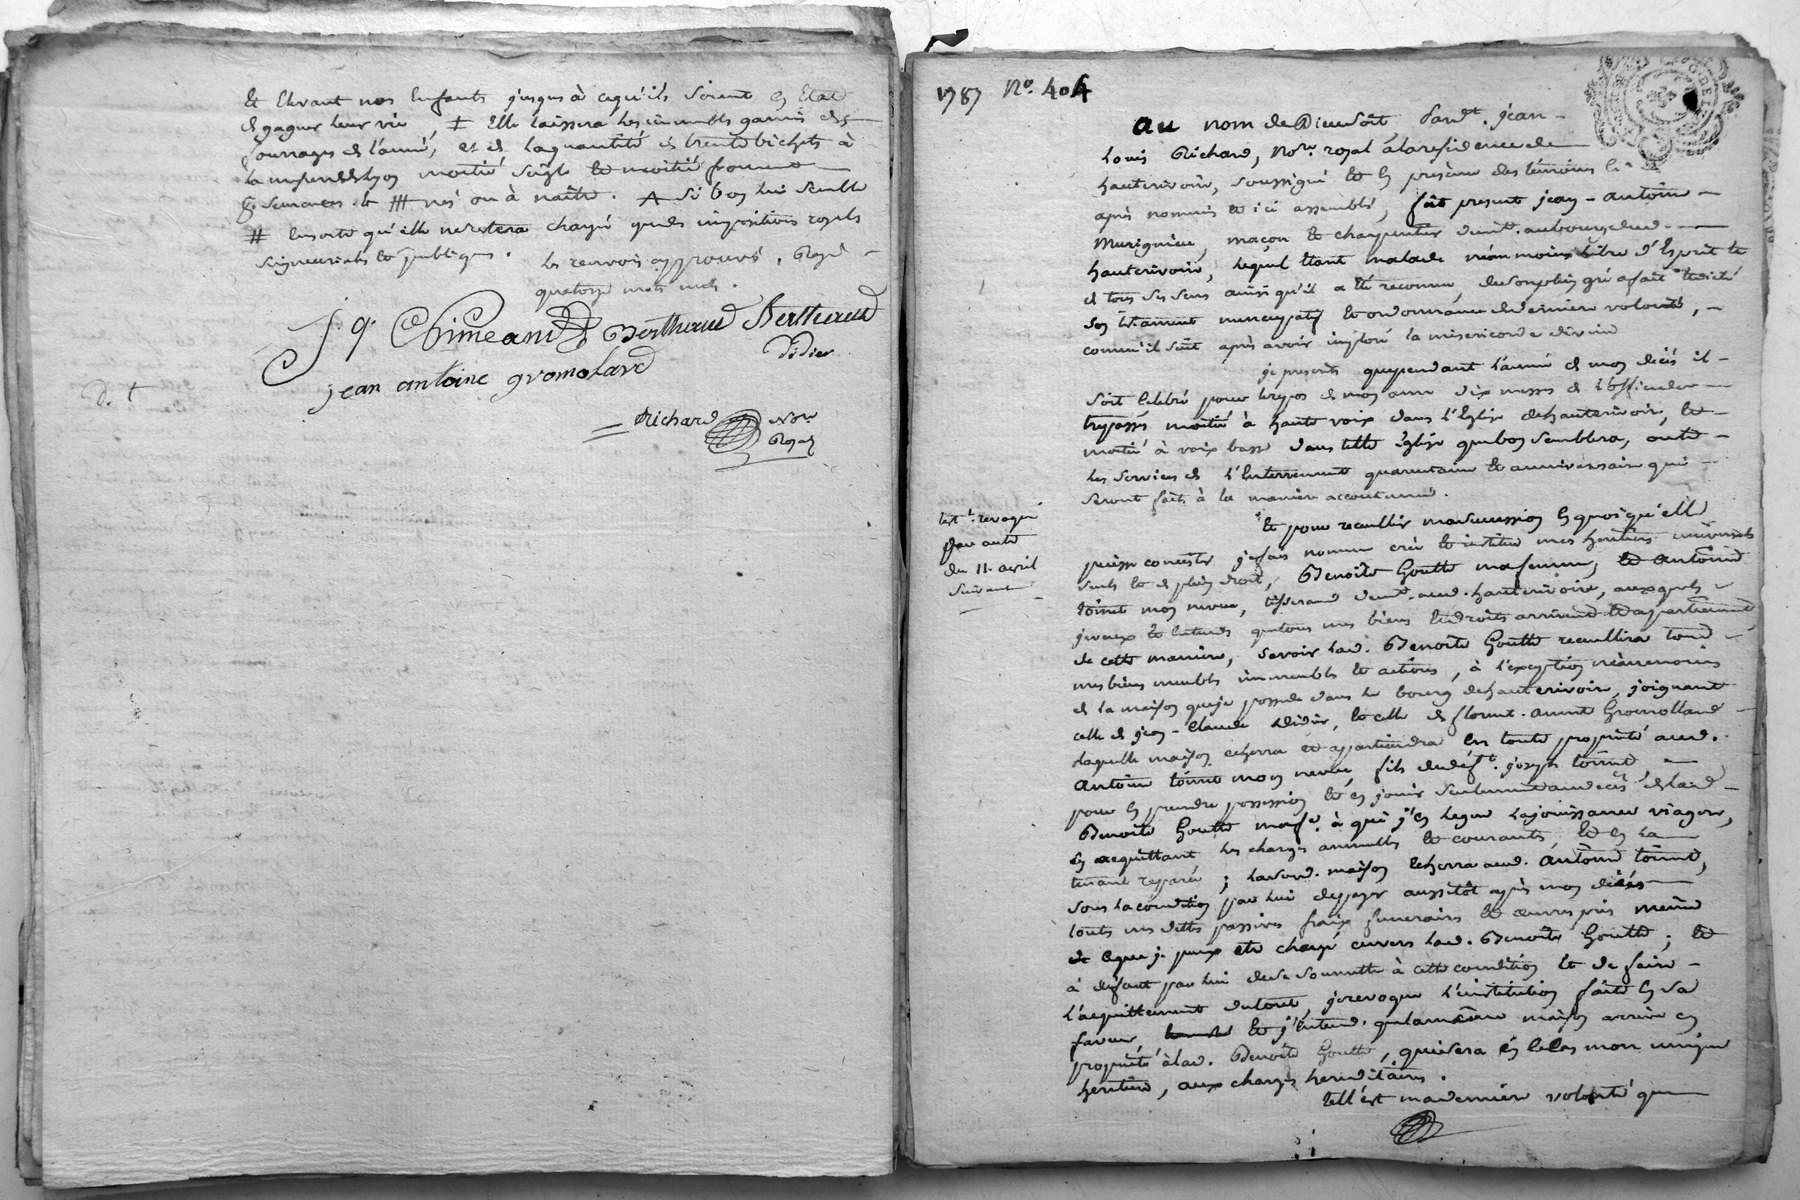 et Elevant nos Enfants jusques à ceque'ils soient En Etat
de gagner leur vie, ‡ Elle laissera les immeubles garnis des
fourrages de l'année, et de la quantité de trente bichets à
la mesure de moitié seigle et moitié froment
En semences. et # nés ou à naître. A si bon lui semble
# Ensorte qu'elle ne restera chargé que des impositions royals
seigneuriales et publiques. les renvois approuvés. Rayé
quatorze mots nuls.
J. q. Chimeand Bertheaud Bertheaud
didier
jean antoine gromolard
d. t
Richard Nore
Royal
1787 No. 404
au nom de Dieu soit pardt. jean
Louis Richard, Nore. royal à la residence de
hauterivoire, soussigné et En présence des témoins Ci
après nommés et ici assemblés, fût présent jean-antoine
Murigneux, maçon et charpentier demt. au bourg dud.
hauterivoire, lequel Etant malade néanmoins libre d'Esprit et
de tous ses sens ainsi qu'il a Eté reconnu, de son plein gré a fait et dicté
son testament nuncupatif et ordonnance de derniere volonté,
comm'il suit après avoir imploré la misericorde divine
je prescris que pendant l'année de mon décés il
soit Celebré pour le repos de mon ame dix messes de l'office des
trepassés moitié à haute voix dans l'Eglise de hauterivoire, et
moitié à voix basse dans telle Eglise que bon semblera, outre
les services de l'Enterrement quarantaine et anniversaire qui
seront faits à la maniere accoutumée.
testt. revoqué
par acte
du 11. avril
suivant
Et pour recuellir ma succession En quoi qu'elle
puisse consister je fais nomme crée et institue mes heritiers universels
seuls et de plein droit, Benoite Goutte ma femme, et antoine
toinet mon neveu, tisserand demt. aud. hauterivoire, auxquels
je veux et Entends que tous mes biens Et droits arrivent et appartiennent
de cette maniere, savoir lad. Benoite Goutte recuellira tous
mes biens meubles immeubles et actions, à l'exception néanmoins
de la maison que je possede dans le bourg de hauterivoire, joignant
celle de jean-Claude didier, et celle de florent. aimée Gromolland
laquelle maison echerra et appartiendra En toute proprieté aud.
antoine toinet mon neveu, fils de déft. joseph toinet
pour En prendre possession et En jouir seulement au décés de lad
Benoite Goutte ma fe. à qui j'En legue la jouissance viagere,
En acquittant les charges annuelles et courantes, et En la
tenant reparée; lasusd. maison Echerra aud. antoine toinet,
sous la condition par lui de payer aussitôt après mon décés
toutes mes dettes passives fraix funeraires et œuvres pies même
de ceque je peux etre chargé envers lad. Benoite Goutte; et
à défaut par lui de se soumettre à cette condition et de faire
l'acquittement du tout, je revoque l'institution faite En sa
faveur et j'Entend. que la même maison arrive En
proprieté à lad. Benoite Goutte, qui sera En ce Cas mon unique
heritiere, aux charges hereditaires.
telle est ma derniere volonté que